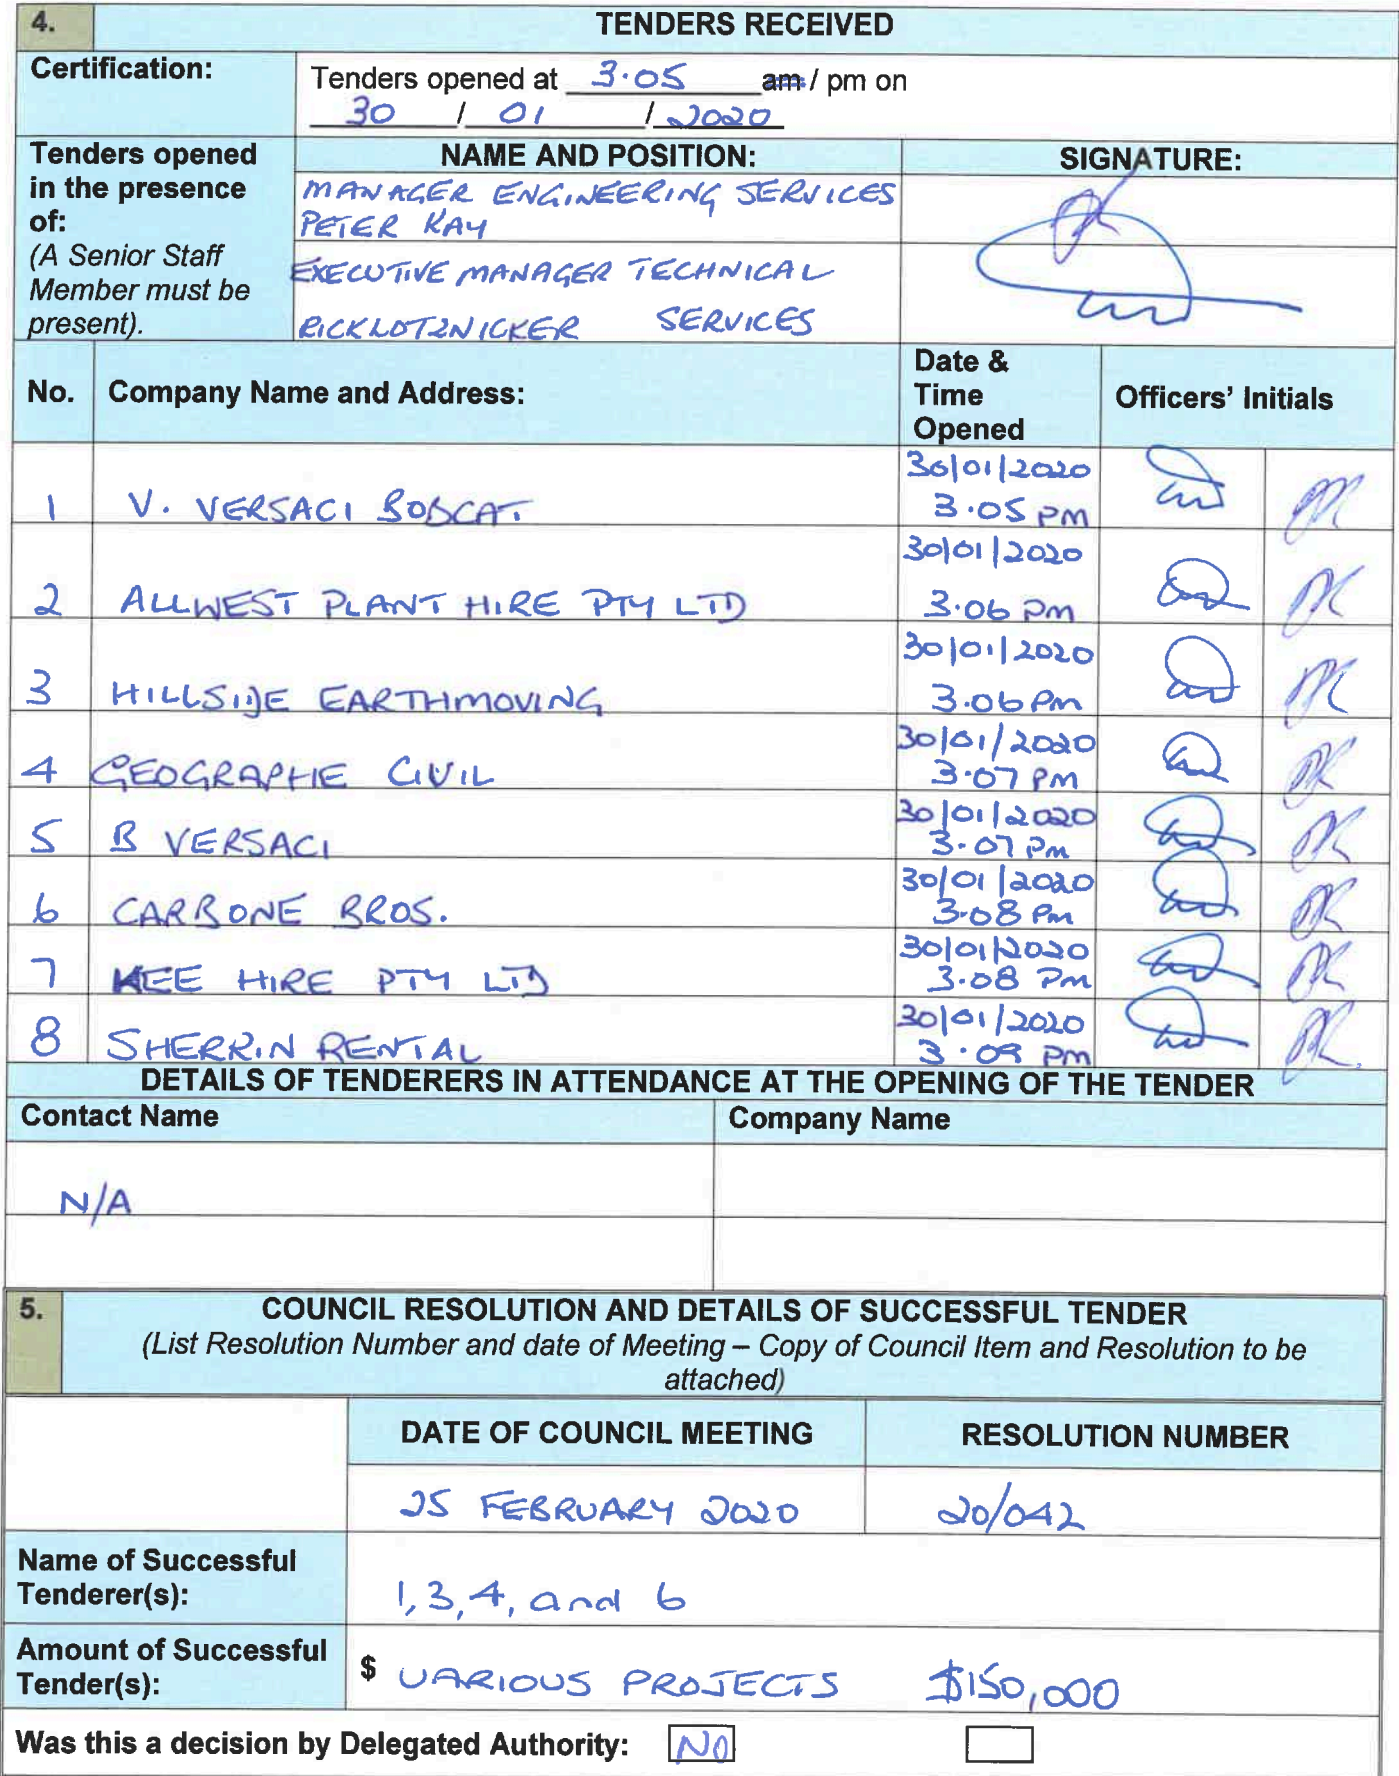 4. TENDERS RECEIVED
Certification:
Tenders opened at 3.05 am / pm on
30 / 01 / 2020
Tenders opened in the presence of:
(A Senior Staff Member must be present).
NAME AND POSITION: SIGNATURE:
MANAGER ENGINEERING SERVICES
PETER KAY
EXECUTIVE MANAGER TECHNICAL
RICK LOTZNICKER SERVICES
No. Company Name and Address: Date & Time Opened Officers' Initials
30/01/2020
1 V. VERSACI BOBCAT. 3.05 PM
30/01/2020
2 ALLWEST PLANT HIRE PTY LTD 3.06 PM
30/01/2020
3 HILLSIDE EARTHMOVING 3.06 PM
30/01/2020
4 GEOGRAPHE CIVIL 3.07 PM
30/01/2020
5 B VERSACI 3.07 PM
30/01/2020
6 CARBONE BROS. 3.08 PM
30/01/2020
7 KEE HIRE PTY LTD 3.08 PM
30/01/2020
8 SHERRIN RENTAL 3.09 PM
DETAILS OF TENDERERS IN ATTENDANCE AT THE OPENING OF THE TENDER
Contact Name Company Name
N/A
5. COUNCIL RESOLUTION AND DETAILS OF SUCCESSFUL TENDER
(List Resolution Number and date of Meeting – Copy of Council Item and Resolution to be
attached)
DATE OF COUNCIL MEETING RESOLUTION NUMBER
25 FEBRUARY 2020 20/042
Name of Successful
Tenderer(s): 1, 3, 4, and 6
Amount of Successful
Tender(s): $ VARIOUS PROJECTS $150,000
Was this a decision by Delegated Authority: NO